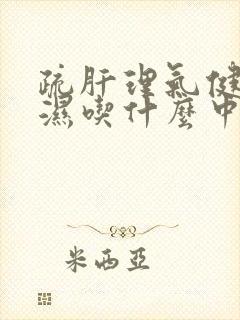 疏肝理气健
濕喫什麼中
米西亞